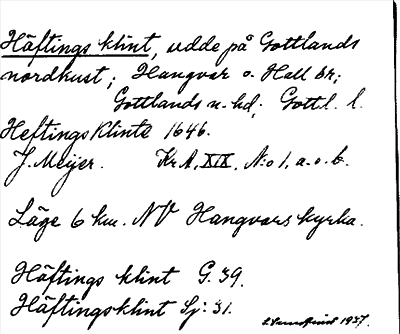 Häftings klint, udde på Gottlands
nordkust; Hangvar o. Hall br;
Gottlands n. hd; Gottl. l.
Heftings Klinte 1646.
J. Meijer. Kr. A, XIX, N:o 1, a. o. b.
Läge 6 km. NV Hangvars kyrka.
Häftings klint G. 39.
Häftingsklint Sj: 31.
1937.